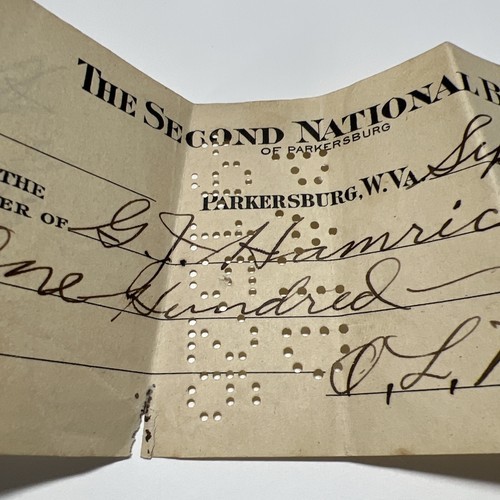 THE SECOND NATIONAL B
OF PARKERSBURG
PARKERSBURG, W. VA. Sep
THE
ER OF G. J. Hamric
One Hundred
O, L,